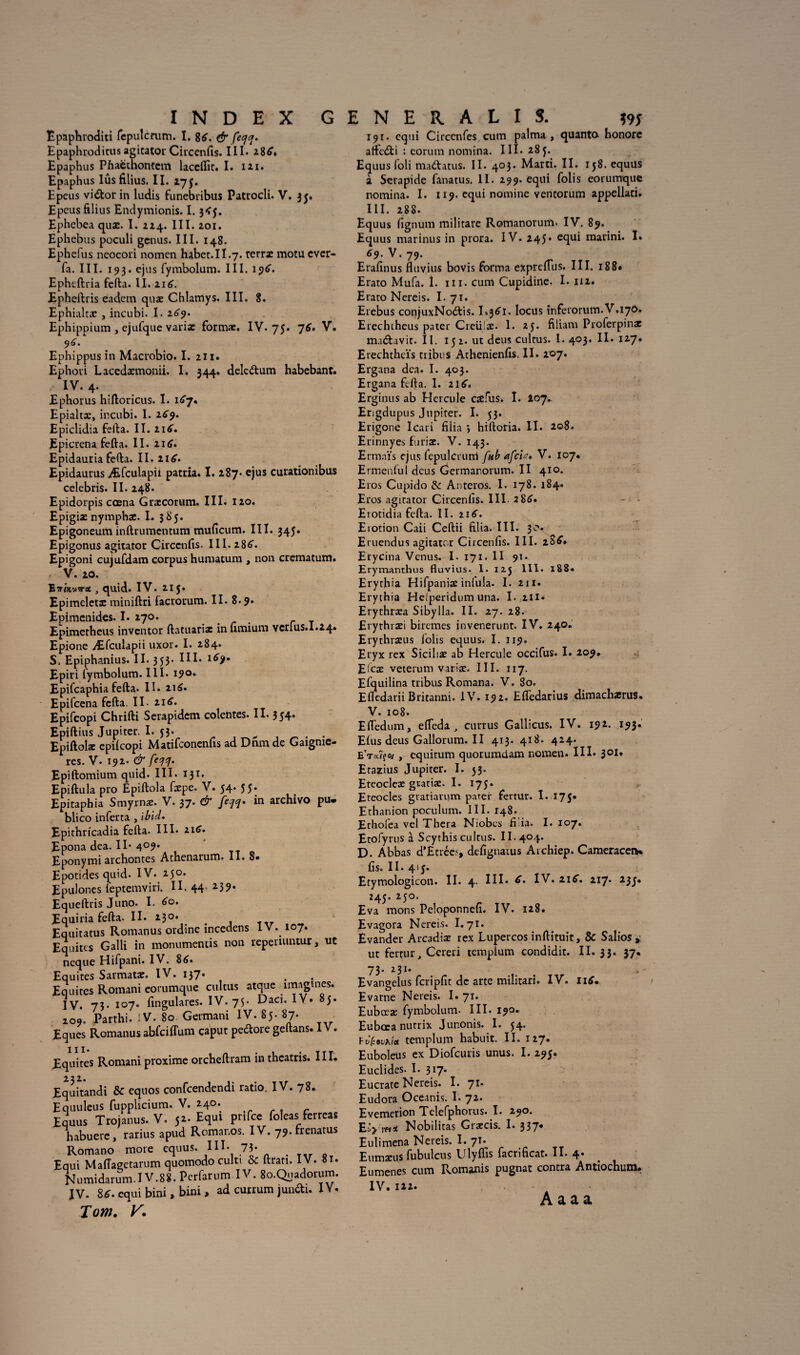 INDEX GENERALIS. 395
Epaphroditi sepulcrum. I. 86. & seqq.
Epaphroditus agitator Circensis. III. 286.
Epaphus Phaëthontem lacessit. I. 121.
Epaphus Iûs filius. II. 275.
Epeus victor in ludis funebribus Patrocli. V. 35.
Epeus filius Endymionis. I. 365.
Ephebea quæ. I. 224. III. 201.
Ephebus poculi genus. III. 148.
Ephesus neocori nomen habet. II. 7. terræ motu ever-
sa. III. 193. ejus symbolum. III. 196.
Ephestria festa. II. 216.
Ephestris eadem quæ Chlamys. III. 8.
Ephialtæ, incubi. I. 269.
Ephippium, ejusque variæ formæ. IV. 75. 76. V.
96.
Ephippus in Macrobio. I. 211.
Ephori Lacedæmonii. I. 344. delectum habebant.
IV. 4.
Ephorus historicus. I. 167.
Epialtæ, incubi. I. 269.
Epiclidia festa. II. 216.
Epicrena festa. II. 216.
Epidauria festa. II. 216.
Epidaurus Æsculapii patria. I. 287. ejus curationibus
celebris. II. 248.
Epidorpis cœna Græcorum. III. 120.
Epigiæ nymphæ. I. 385.
Epigoneum instrumentum musicum. III. 345.
Epigonus agitator Circensis. III. 286.
Epigoni cujusdam corpus humatum, non crematum.
V. 20.
quid. IV. 215.
Epimeletæ ministri sacrorum. II. 8. 9.
Epimenides. I. 270.
Epimetheus inventor statuariæ in simium versus. I. 24.
Epione Æsculapii uxor. I. 284.
S. Epiphanius. II. 353. III. 169.
Epiri symbolum. III. 190.
Episcaphia festa. II. 216.
Episcena festa. II. 216.
Episcopi Christi Serapidem colentes. II. 354.
Epistius Jupiter. I. 53.
Epistolæ episcopi Matisconensis ad Dnm de Gaignie-
res. V. 192. & seqq.
Epistomium quid. III. 131.
Epistula pro Epistola sæpe. V. 54. 55.
Epitaphia Smyrnæ. V. 37. & seqq. in archivo pu-
blico inserta, ibid.
Epithricadia festa. III. 216.
Epona dea. II. 409.
Eponymi archontes Athenarum. II. 8.
Epotides quid. IV. 250.
Epulones septemviri. II. 44. 239.
Equestris Juno. I. 60.
Equiria festa. II. 230.
Equitatus Romanus ordine incedens IV. 107.
Equites Galli in monumentis non reperiuntur, ut
neque Hispani. IV. 86.
Equites Sarmatæ. IV. 137.
Equites Romani eorumque cultus atque imagines.
IV. 73. 107. singulares. IV. 75. Daci. IV. 85.
209. Parthi. IV. 80. Germani IV. 85. 87.
Eques Romanus abscissum caput pectore gestans. IV.
111.
Equites Romani proxime orchestram in theatris. III.
232.
Equitandi & equos conscendendi ratio. IV. 78.
Equuleus supplicium. V. 240.
Equus Trojanus. V. 52. Equi prisce soleas ferreas
habuere, rarius apud Romanos. IV. 79. frenatus
Romano more equus. III. 73.
Equi Massagetarum quomodo culti & strati. IV. 81.
Numidarum. IV. 88. Persarum IV. 80. Quadorum.
IV. 86. equi bini, bini, ad currum juncti. IV.
Tom. V.
191. equi Circenses cum palma, quanto honore
affecti: eorum nomina. III. 285.
Equus soli mactatus. II. 403. Marti. II. 158. equus
à Serapide sanatus. II. 299. equi solis eorumque
nomina. I. 119. equi nomine ventorum appellati.
III. 288.
Equus signum militare Romanorum. IV. 89.
Equus marinus in prora. IV. 245. equi marini. I.
69. V. 79.
Erasinus fluvius bovis forma expressus. III. 188.
Erato Musa. I. 111. cum Cupidine. I. 112.
Erato Nereis. I. 71.
Erebus conjux Noctis. I. 361. locus inferorum. V. 170.
Erechtheus pater Creüsæ. I. 25. filiam Proserpinæ
mactavit. II. 152. ut deus cultus. I. 403. II. 127.
Erechtheïs tribus Atheniensis. II. 207.
Ergana dea. I. 403.
Ergana festa. I. 216.
Erginus ab Hercule cæsus. I. 207.
Erigdupus Jupiter. I. 53.
Erigone Icari filia; historia. II. 208.
Erinnyes furiæ. V. 143.
Ermaïs ejus sepulcrum sub ascia. V. 107.
Ermensul deus Germanorum. II 410.
Eros Cupido & Anteros. I. 178. 184.
Eros agitator Circensis. III. 286.
Erotidia festa. II. 216.
Erotion Caii Cestii filia. III. 30.
Eruendus agitator Circensis. III. 286.
Erycina Venus. I. 171. II 91.
Erymanthus fluvius. I. 125 III. 188.
Erythia Hispaniæ insula. I. 211.
Erythia Hesperidum una. I. 211.
Erythræa Sibylla. II. 27. 28.
Erythræi biremes invenerunt. IV. 240.
Erythræus solis equus. I. 119.
Eryx rex Siciliæ ab Hercule occisus. I. 209.
Escæ veterum variæ. III. 117.
Esquilina tribus Romana. V. 80.
Essedarii Britanni. IV. 192. Essedarius dimachærus.
V. 108.
Essedum, esseda, currus Gallicus. IV. 192. 193.
Esus deus Gallorum. II 413. 418. 424.
equitum quorumdam nomen. III. 301.
Etazius Jupiter. I. 53.
Eteocleæ gratiæ. I. 175.
Eteocles gratiarum pater fertur. I. 175.
Ethanion poculum. III. 148.
Ethosea vel Thera Niobes filia. I. 107.
Etosyrus à Scythis cultus. II. 404.
D. Abbas d'Etrées, designatus Archiep. Cameracen-
sis. II. 415.
Etymologicon. II. 4. III. 6. IV. 216. 217. 235.
245. 250.
Eva mons Peloponnesi. IV. 128.
Evagora Nereis. I. 71.
Evander Arcadiæ rex Lupercos instituit, & Salios,
ut fertur, Cereri templum condidit. II. 33. 37.
73. 231.
Evangelus scripsit de arte militari. IV. 116.
Evarne Nereis. I. 71.
Eubœæ symbolum. III. 190.
Eubœa nutrix Junonis. I. 54.
templum habuit. II. 127.
Euboleus ex Dioscuris unus. I. 295.
Euclides. I. 317.
Eucrate Nereis. I. 71.
Eudora Oceanis. I. 72.
Evemerion Telesphorus. I. 290.
Nobilitas Græcis. I. 337.
Eulimena Nereis. I. 71.
Eumæus subulcus Ulyssis sacrificat. II. 4.
Eumenes cum Romanis pugnat contra Antiochum.
IV. 122.
Aaaa